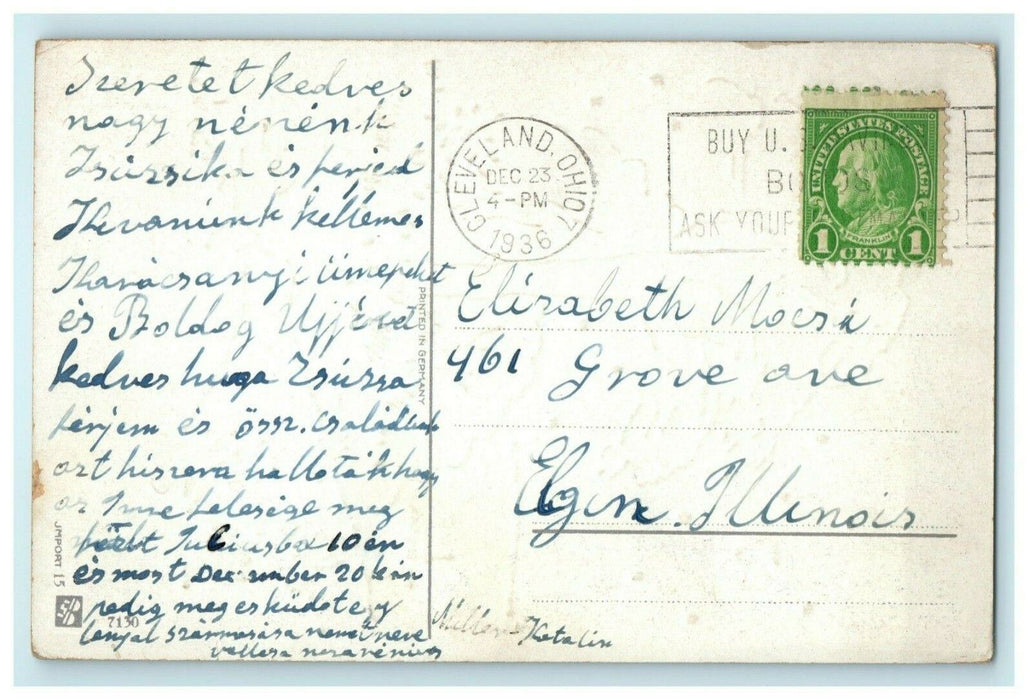 Szeretet kedves
nagy nénénk
Zsúzsika és férjed
Kevanúnk kellemes
Karácsanyi ümepeket
és Boldog Ujjévet
kedves huga Zsúzsa
férjem és össz. családunk
azt hiszem hallották hogy
az Imre felesége meg
Juliusba 10 én
és most December 20 kán
pedig meg esküdet egy
lányal származása német neve
PRINTED IN GERMANY
JMPORT 15
7130
CLEVELAND, OHIO 7
DEC 23
4-PM
1936
BUY U.
ASK YOUR
UNITED STATES POSTAGE
FRANKLIN
1 CENT 1
Elizabeth Mocsá
461 Grove ave
Elgin. Illinois
Katalin